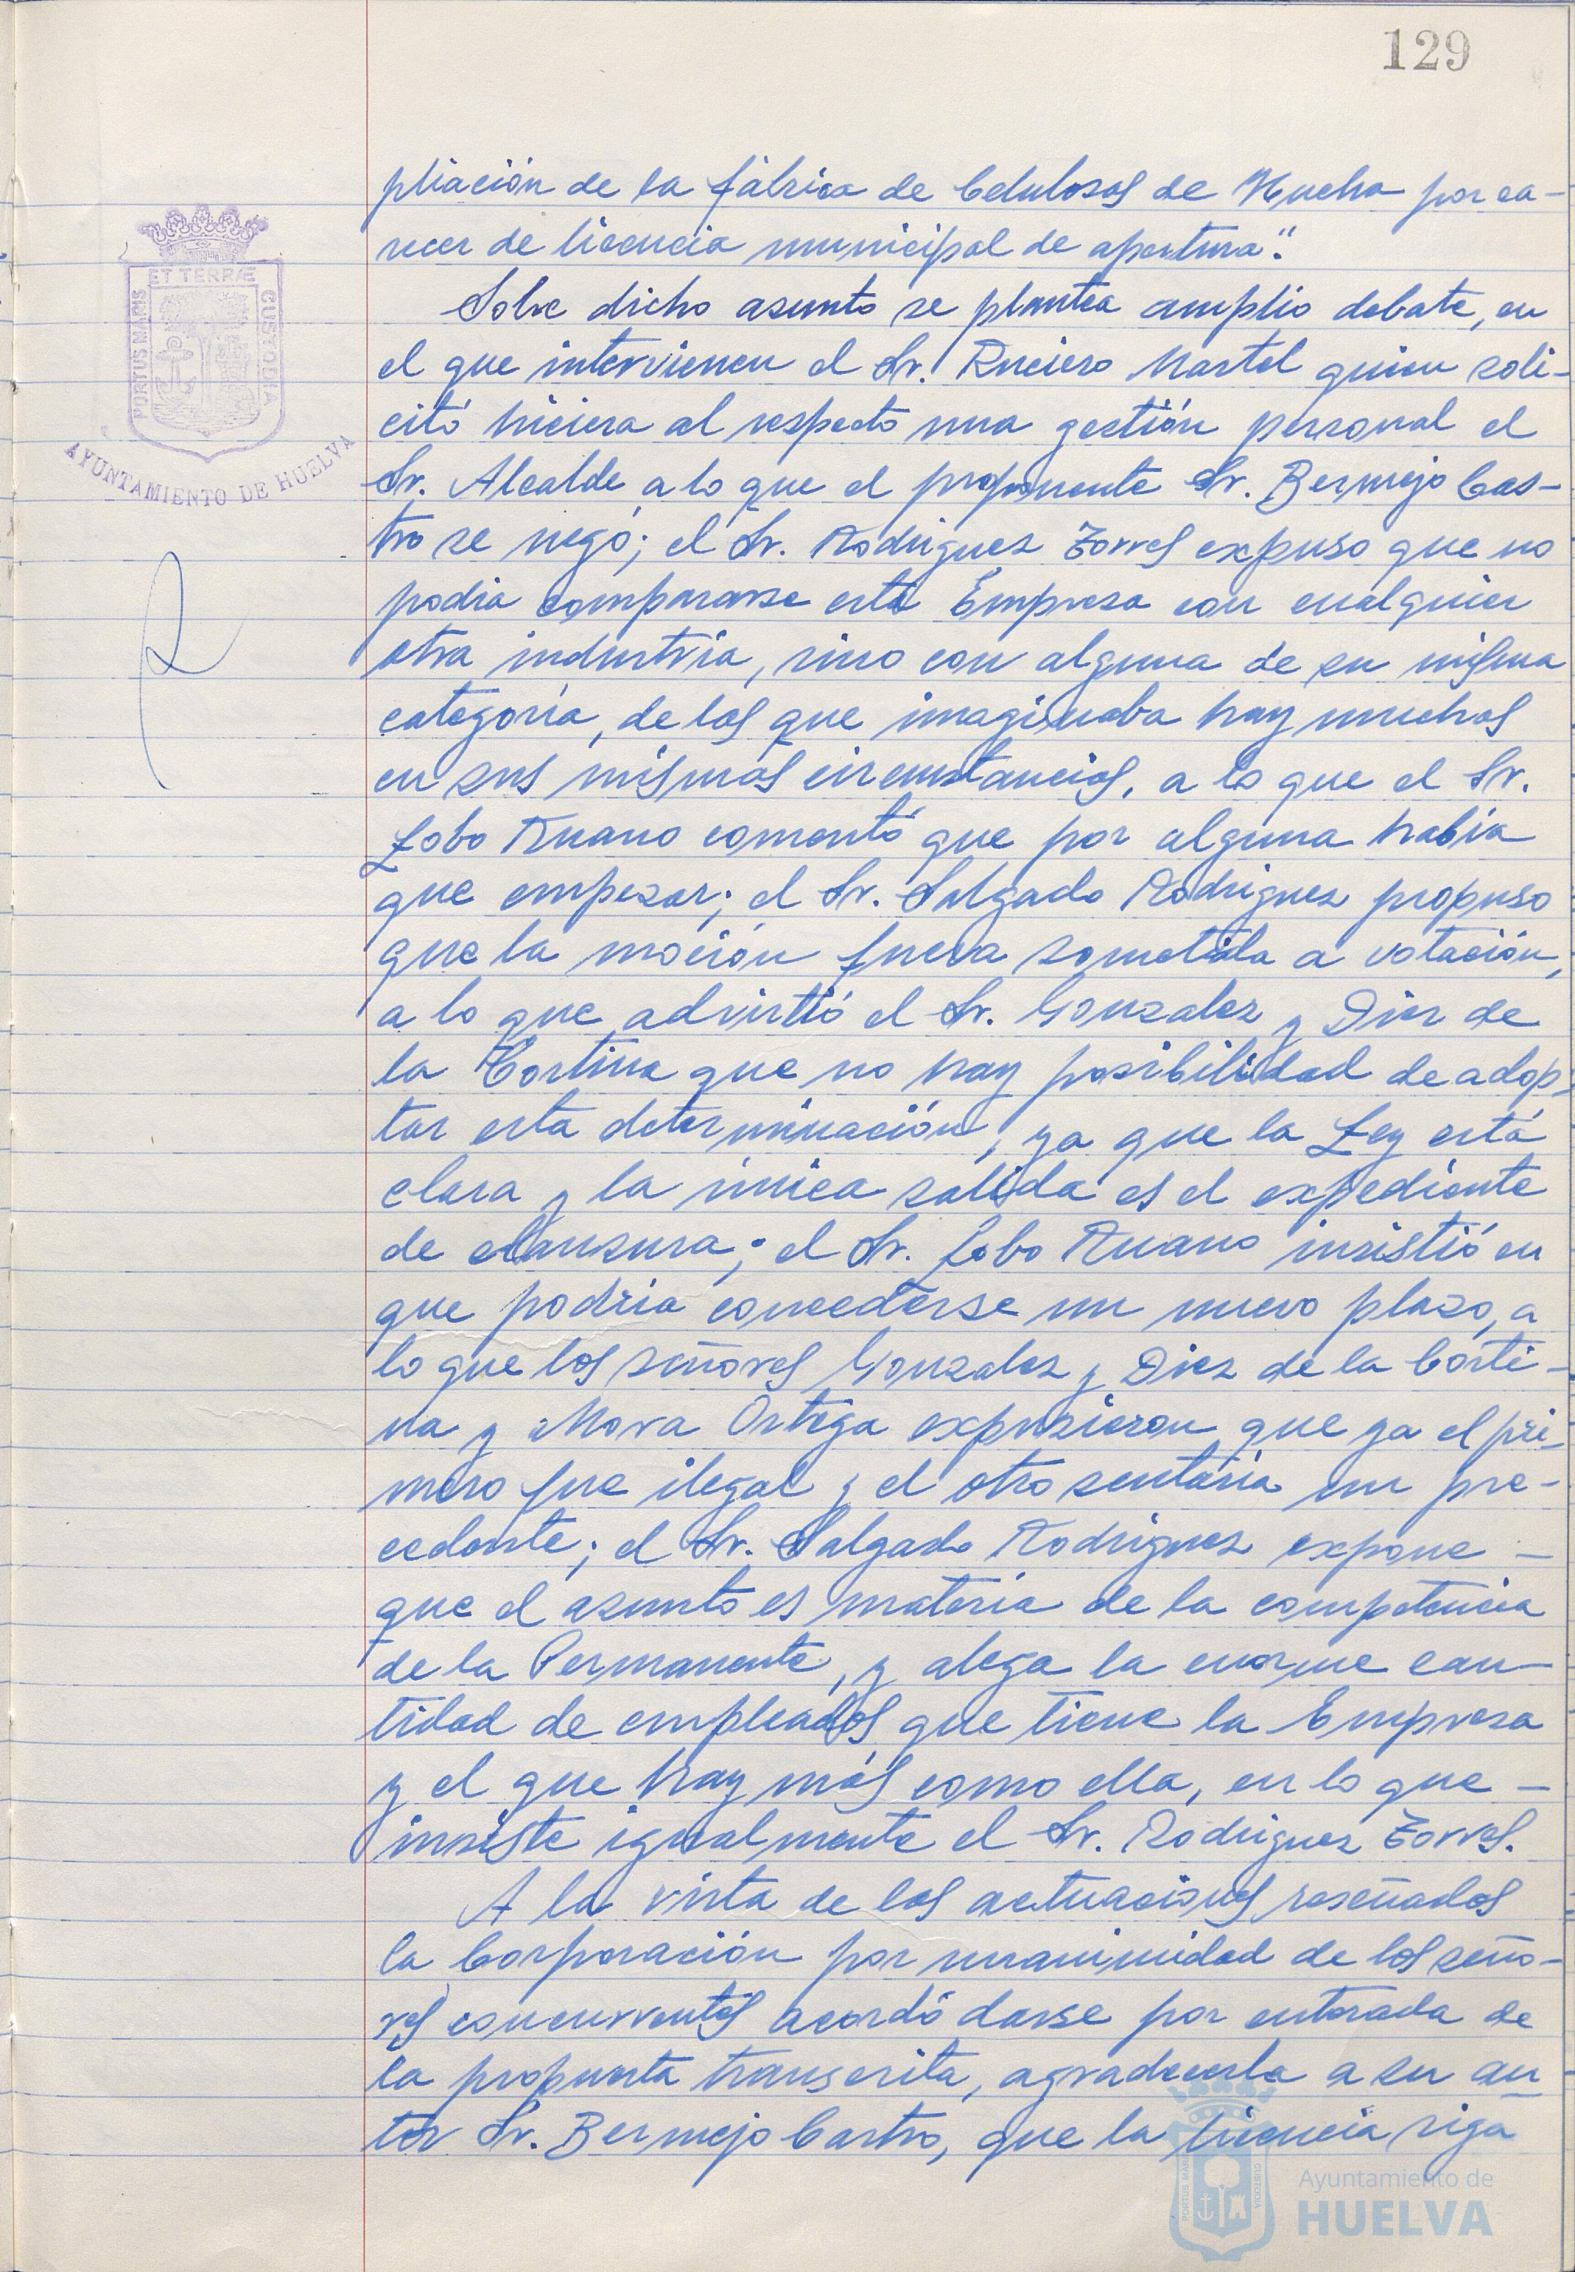 129
ET TERRÆ
PORTUS MARIS
CUSTODIA
AYUNTAMIENTO DE HUELVA
pliación de la fábrica de Celulosas de Huelva por ca-
recer de licencia municipal de apertura".
Sobre dicho asunto se plantea amplio debate, en
el que intervienen el Sr. Ruciero Martel quien soli-
citó hiciera al respecto una gestión personal el
Sr. Alcalde, a lo que el proponente Sr. Bermejo Cas-
tro se negó; el Sr. Rodriguez Torres expuso que no
podia compararse esta Empresa con cualquier
otra industria, sino con alguna de su misma
categoría, de las que imaginaba hay muchas
en sus mismas circunstancias, a lo que el Sr.
Lobo Ruano comentó que por alguna había
que empezar; el Sr. Salgado Rodriguez propuso
que la moción fuera sometida a votación,
a lo que advirtió el Sr. Gonzalez y Diez de
la Cortina que no hay posibilidad de adop-
tar esta determinación, ya que la Ley está
clara y la única salida es el expediente
de clausura; el Sr. Lobo Ruano insistió en
que podría concederse un nuevo plazo, a
lo que los señores Gonzalez y Diez de la Corti-
na y Mora Ortega expusieron que ya el pri-
mero fue ilegal y el otro sentaría un pre-
cedente; el Sr. Salgado Rodriguez expone -
que el asunto es materia de la competencia
de la Permanente, y alega la enorme can-
tidad de empleados que tiene la Empresa
y el que hay más como ella, en lo que -
insiste igualmente el Sr. Rodriguez Torres.
A la vista de las actuaciones reseñadas
la Corporación por unanimidad de los seño-
res concurrentes acordó darse por enterada de
la propuesta transcrita, agradecerla a su au-
tor Sr. Bermejo Castro, que la licencia siga
PORTUS MARIS
CUSTODIA
Ayuntamiento de
HUELVA